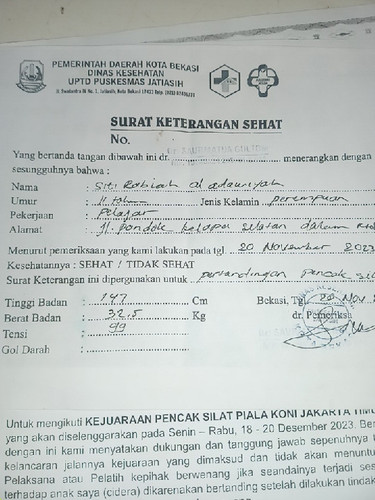 PEMERINTAH DAERAH KOTA BEKASI
DINAS KESEHATAN
UPTD PUSKESMAS JATIASIH
SURAT KETERANGAN SEHAT
No.
Yang bertanda tangan dibawah ini dr. menerangkan dengan
sesungguhnya bahwa :
Nama : Siti Robiah al adawiyah
Umur : 11 tahun Jenis Kelamin : perempuan
Pekerjaan : Pelajar
Alamat : Jl. Pondok kelapa selatan dalam
Menurut pemeriksaan yang kami lakukan pada tgl. 20 November 2023
Kesehatannya : SEHAT / TIDAK SEHAT
Surat Keterangan ini dipergunakan untuk pertandingan Pencak
Tinggi Badan : 147 Cm Bekasi, Tgl 20 Nov
Berat Badan : 32.5 Kg dr. Pemeriksa
Tensi : 99
Gol Darah :
Untuk mengikuti KEJUARAAN PENCAK SILAT PIALA KONI JAKARTA TIMU
yang akan diselenggarakan pada Senin – Rabu, 18 - 20 Desember 2023. Ber
dengan ini kami menyatakan dukungan dan tanggung jawab sepenuhnya
kelancaran jalannya kejuaraan yang dimaksud dan tidak akan menuntut
Penyelenggara atau Pelatih kepihak berwenang jika seandainya terjadi ses
terhadap anak saya (cidera) dikarenakan bertanding setelah dilakukan tindak